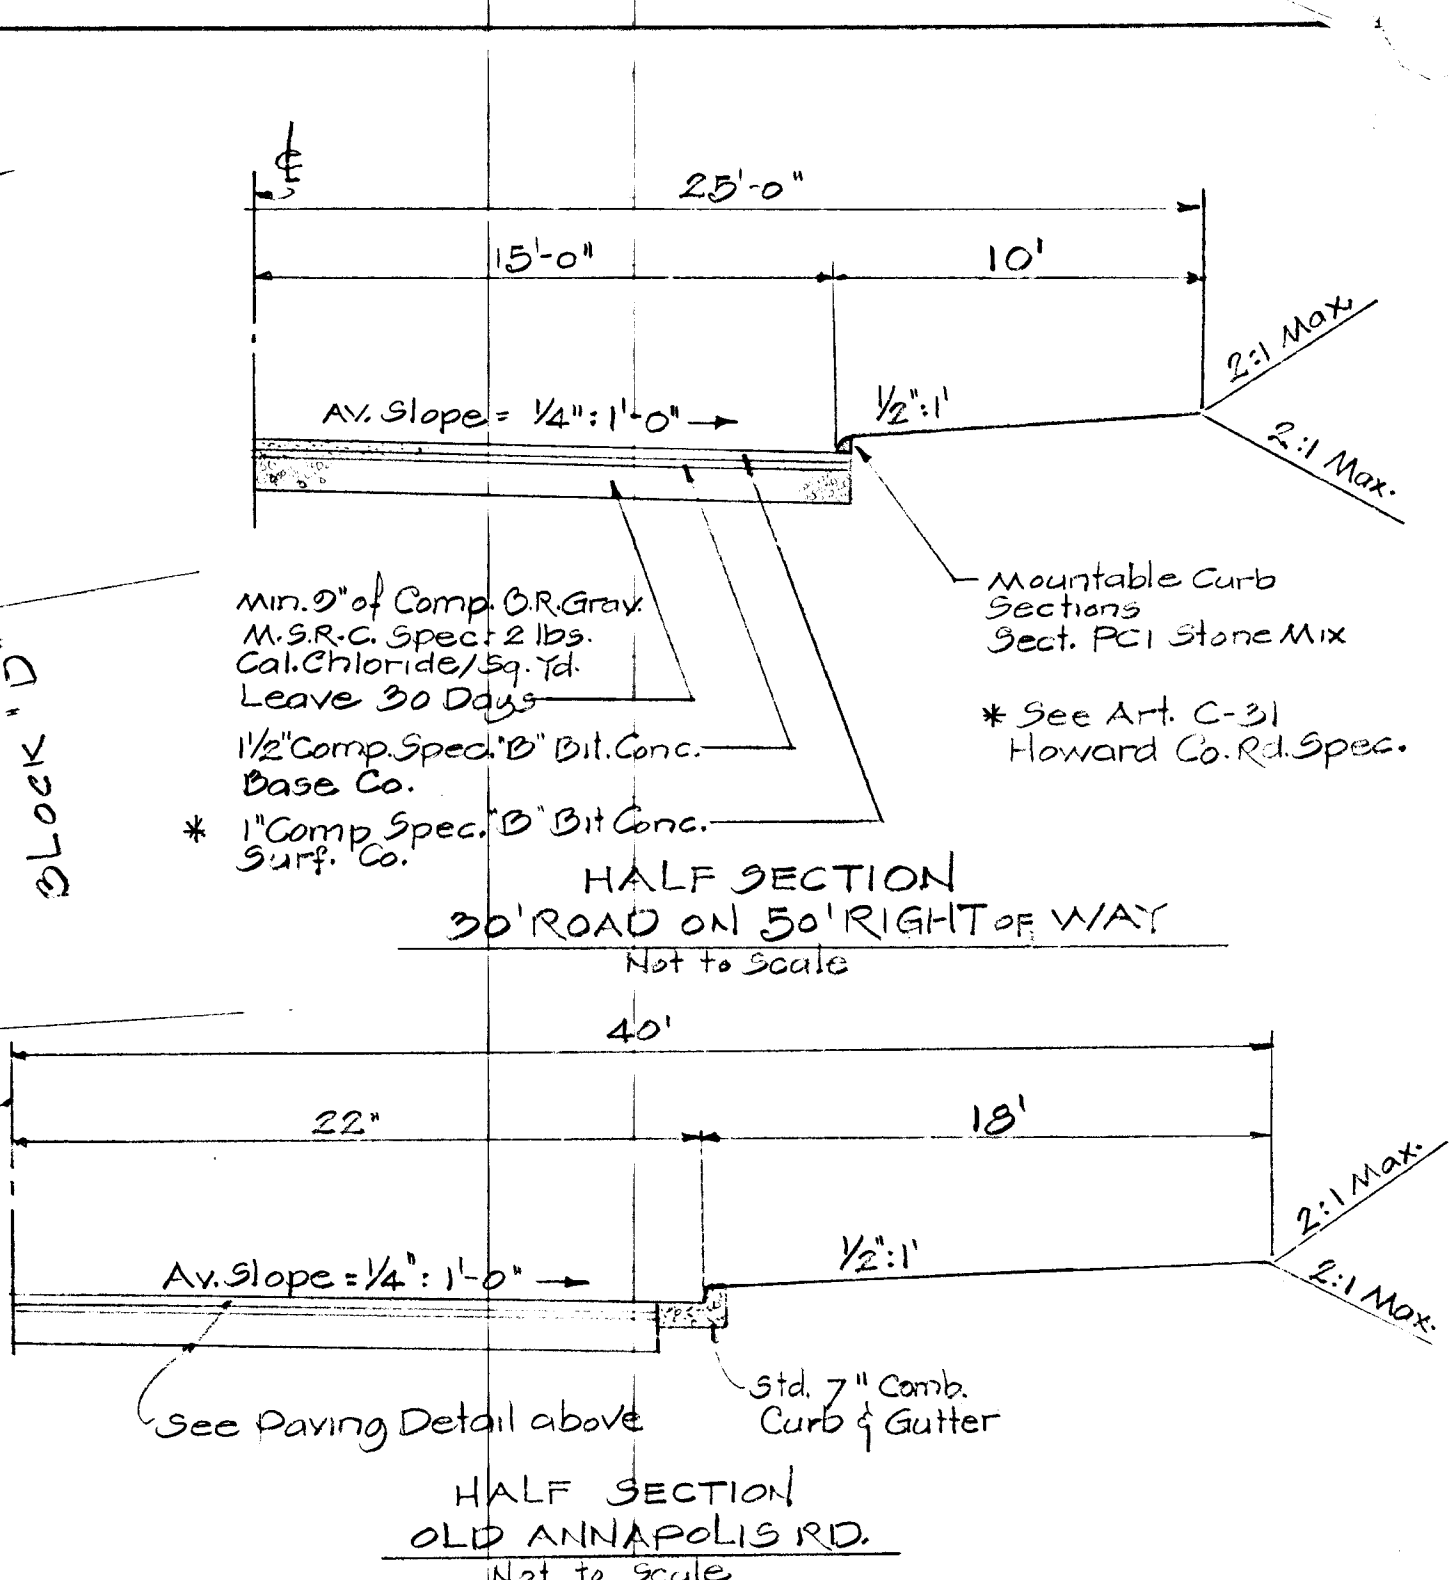 ℄
25'-0"
15'-0"
10'
2:1 Max.
2:1 Max.
Av. Slope = 1/4" : 1'-0"
1/2":1'
Min. 9" of Comp. B.R. Grav.
M.S.R.C. Spec: 2 lbs.
Cal. Chloride/Sq. Yd.
Leave 30 Days
1 1/2" Comp. Spec. "B" Bit. Conc.
Base Co.
* 1" Comp Spec. "B" Bit Conc.
Surf. Co.
Mountable Curb
Sections
Sect. PC1 Stone Mix
* See Art. C-31
Howard Co. Rd. Spec.
BLOCK "D"
HALF SECTION
30' ROAD ON 50' RIGHT OF WAY
Not to Scale
40'
22"
18'
2:1 Max.
2:1 Max.
Av. Slope = 1/4" : 1'-0"
1/2":1'
See Paving Detail above
Std. 7" Comb.
Curb & Gutter
HALF SECTION
OLD ANNAPOLIS RD.
Not to Scale